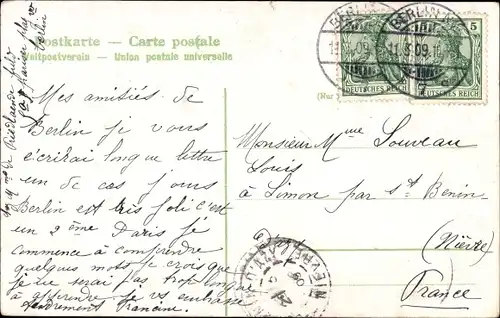 Postkarte - Carte postale
Weltpostverein - Union postale universelle
BERLIN
BERLIN
11. 8.09.
5
DEUTSCHES REICH
DEUTSCHES REICH
(Nur
Mes amitiés de
Berlin je vous
écrirai longue lettre
un de ces jours
Berlin est très joli c'est
un 2ème Paris je
commence à comprendre
quelques mots je crois que
je ne serai pas trop longue
à apprendre je vs embrasse
tendrement Francine
Monsieur Mme Louveau
Louis
à Limon par St Benin
(Nièvre)
France